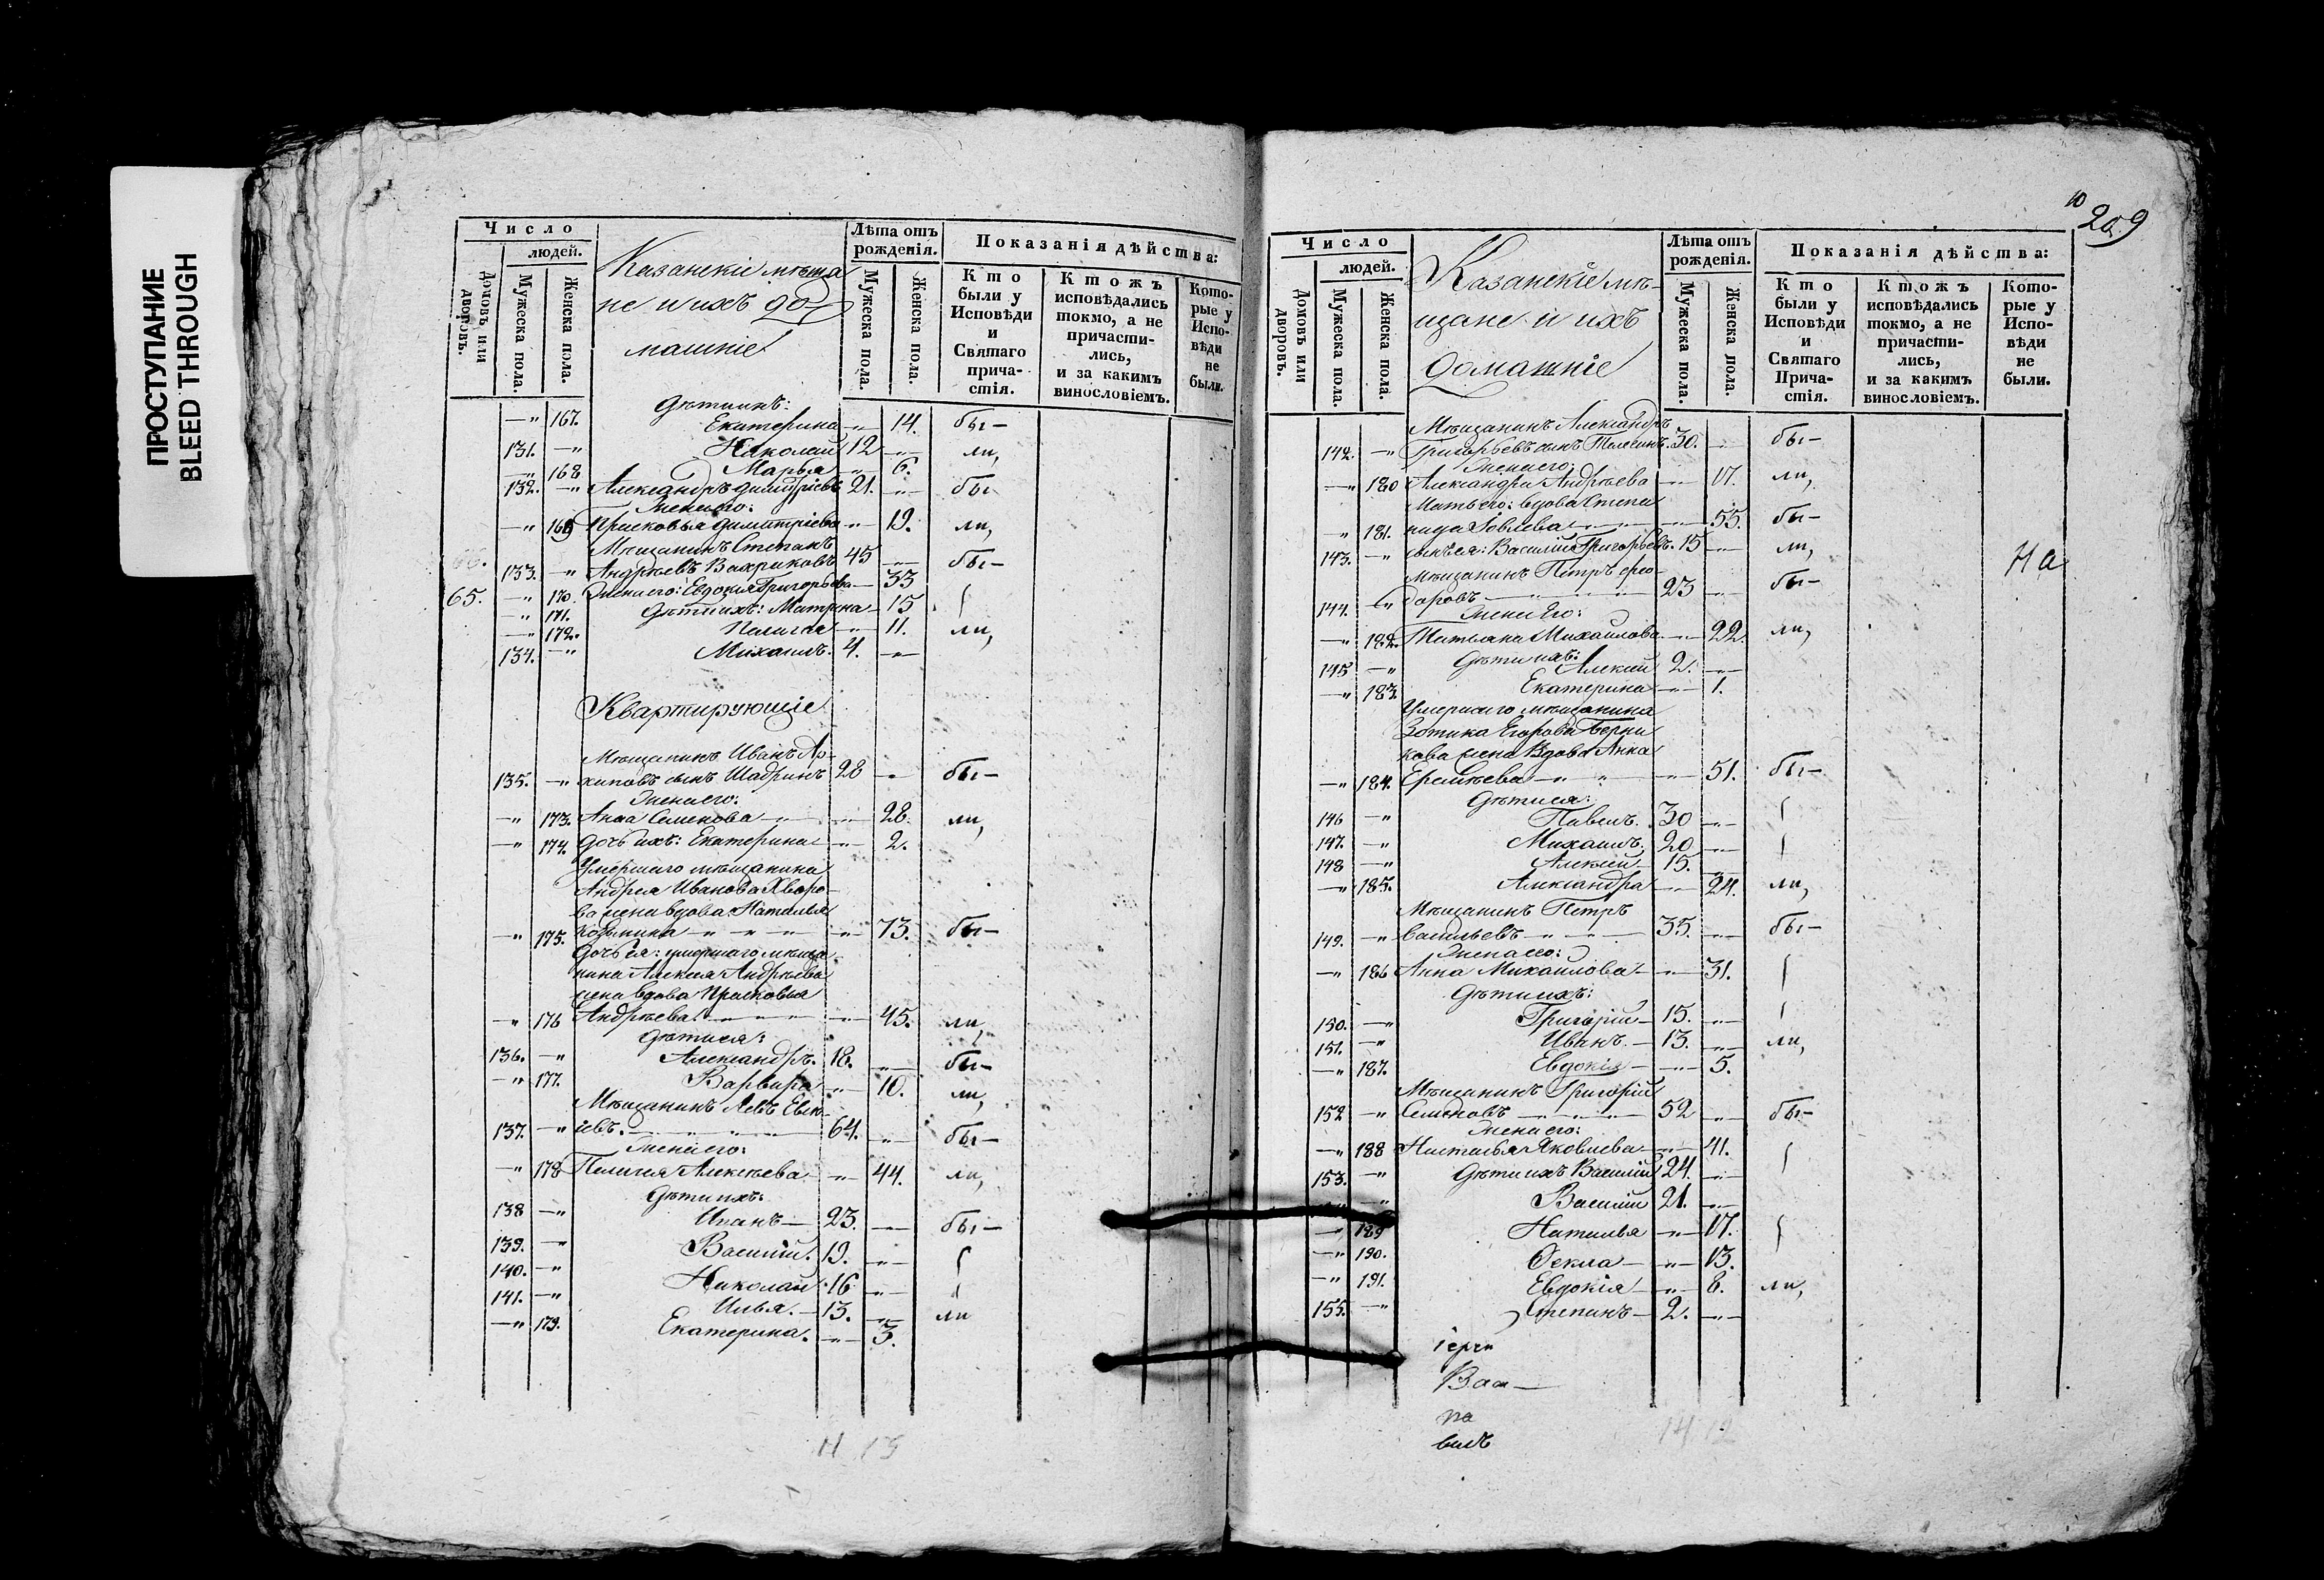 ПРОСТУПАНИЕ
BLEED THROUGH
Число
людей.
Домовъ или дворовъ.
Мужеска пола.
Женска пола.
Казанскіе мѣща
не и ихъ до
машніе
Лѣта отъ рожденія.
Мужеска пола.
Женска пола.
Показанія дѣйства:
Кто были у Исповѣди и Святаго причастія.
Ктожъ исповѣдались токмо, а не причастились, и за какимъ винословіемъ.
Которые у Исповѣди не были.
Дѣти ихъ:
—" 167. Екатерина —"— 14. бы—
131. —" Николай 12 —"— ли,
—" 168 Марья —"— 6.
132. —" Александръ Димитріевъ 21. —"— бы
Жена его:
—" 169 Прасковья Димитріева —"— 19. ли,
Мѣщанинъ Степанъ
133. —" Андреевъ Вахриковъ 45 —"— бы—
65. —" 170. Жена его: Евдокія Григорьева — 33
—" 171. Дѣти ихъ: Матрена — 15
—" 172. Пелагея —"— 11. ли,
134. —" Михаилъ. 4. —"—
Квартирующіе
Мѣщанинъ Иванъ Ар-
135. —" хиповъ сынъ Шадринъ 28 —"— бы—
Жена его:
—" 173. Анна Семенова —"— 28. ли,
—" 174. Дочь ихъ: Екатерина —"— 2.
Умершаго мѣщанина
Андрея Иванова Хворо-
ва жена вдова Наталья
—" 175. Козьмина —"— 73. бы—
Дочь ея: умершаго мѣща-
нина Алексея Андрѣева
жена вдова Прасковья
—" 176 Андрѣева —"— 45. ли,
Дѣти ея:
136. —" Александръ. 18. —"— бы—
—" 177. Варвара —"— 10. ли,
Мѣщанинъ Левъ Евсѣ-
137. —" евъ. —"— 64. —"— бы—
Жена его:
—" 178 Пелагея Алексѣева —"— 44. ли,
Дѣти ихъ:
138 —" Иванъ — 23. —"— бы—
139. —" Василій. 19. —"—
140. —" Николай 16 —"—
141. —" Илья. — 13. —"— ли
—" 179. Екатерина. —"— 3.
10
209
Число
людей.
Домовъ или дворовъ.
Мужеска пола.
Женска пола.
Казанскіе мѣ-
щане и ихъ
домашніе
Лѣта отъ рожденія.
Мужеска пола.
Женска пола.
Показанія дѣйства:
Кто были у Исповѣди и Святаго Причастія.
Ктожъ исповѣдались токмо, а не причастились, и за какимъ винословіемъ.
Которые у Исповѣди не были.
Мѣщанинъ Александръ
142. —" Григорьевъ сынъ 30. —"— бы—
Жена его:
—" 180 Александра Андрѣева —"— 17. ли,
Мать его: вдова Степа
—" 181. нида Іовлева —"— 55. бы—
143. —" сынъ ея: Василій Григорьевъ. 15 —"— ли,
На
Мѣщанинъ Петръ Ѳео-
144. —" доровъ —"— 23 —"— бы—
Жена Его:
—" 182. Татьяна Михайлова —"— 22. ли,
Дѣти ихъ:
145 —" Алексій 2. —"—
—" 183. Екатерина —"— 1.
Умершаго мѣщанина
Зотика Егорова Берни
кова жена Вдова Анна
—" 184. Еремѣева —"— 51. бы—
Дѣти ея:
146 —" Павелъ. 30 —"—
147. —" Михаилъ. 20 —"—
148 —" Алексій 15. —"—
—" 185. Александра —"— 24. ли,
Мѣщанинъ Петръ
149. —" Васильевъ —"— 35. —"— бы—
Жена его:
—" 186 Анна Михайлова —"— 31.
Дѣти ихъ:
150. —" Григорій — 15. —"—
151. —" Иванъ. — 13. —"— ли,
—" 187. Евдокія —"— 5.
Мѣщанинъ Григорій
152 —" Семеновъ —"— 52 —"— бы—
Жена его:
—" 188 Наталья Яковлева —"— 41.
153. —" Дѣти ихъ Василій 24. —"—
—" Василій 21. —"—
—" 189 Наталья —"— 17.
—" 190. Ѳекла —"— 13.
—" 191. Евдокія —"— 8. ли,
155. —" Степанъ — 2. —"—
іерей
Ваа—
по
вилъ